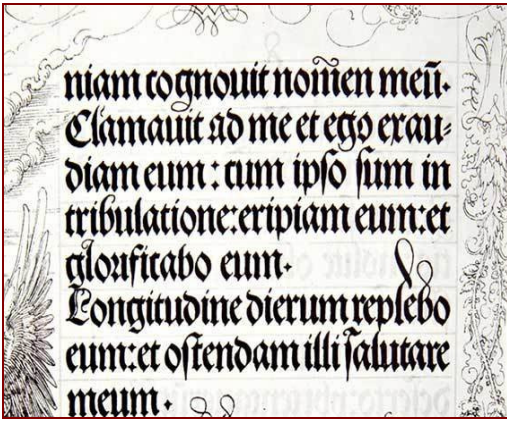 niam cognouit nom̃en meũ.
Clamauit ad me et ego exau⸗
diam eum : cum ipſo ſum in
tribulatione:eripiam eum:et
glorificabo eum.
Longitudine dierum replebo
eum:et oſtendam illi ſalutare
meum.